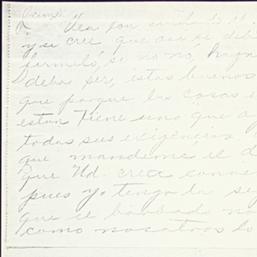 Vea con
y si cree que así se debe
si no no, haga
deba ser, estas buenos
que porque las cosas e
estan tiene uno que a
todas sus exigencias
que mandeme el d
que Ud. crea conve
pues yo tengo la se
que el no
como nosotros lo